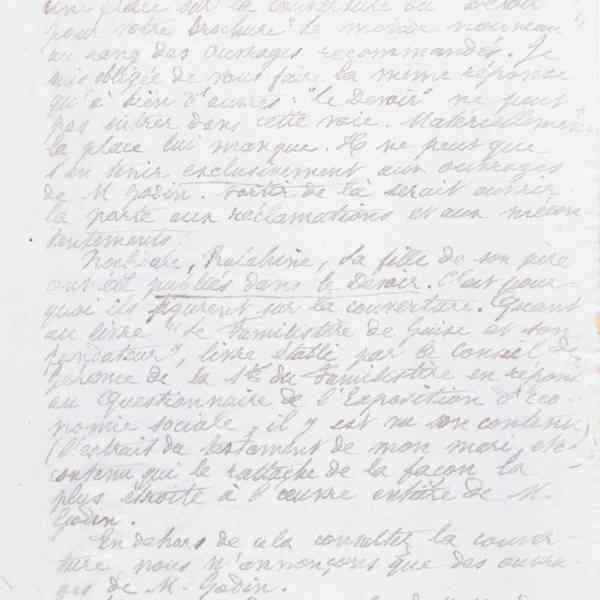 une place sur la couverture du Devoir
pour votre brochure "le monde nouveau",
au rang des ouvrages recommandés. Je
suis obligée de vous faire la même réponse
qu'à bien d'autres: "le Devoir" ne peut
pas entrer dans cette voie. Matériellement
la place lui manque. Il ne peut que
s'en tenir exclusivement aux ouvrages
de M. Godin. Sortir de là serait ouvrir
la porte aux réclamations et aux mécon-
tentements.
la fille de son père
ont été publiés dans le Devoir. C'est pour-
quoi ils figurent sur la couverture. Quant
au livre "Le Familistère de Guise et son
fondateur", livre établi par le Conseil de
Gérance de la Sté du Familistère en réponse
au Questionnaire de l'Exposition d'éco-
nomie sociale, il y est vu son contenu
(l'extrait du testament de mon mari, etc)
contenu qui le rattache de la façon la
plus étroite à l'œuvre entière de M.
Godin.
En dehors de cela consultez la couver-
ture nous n'annonçons que des ouvra-
ges de M. Godin.